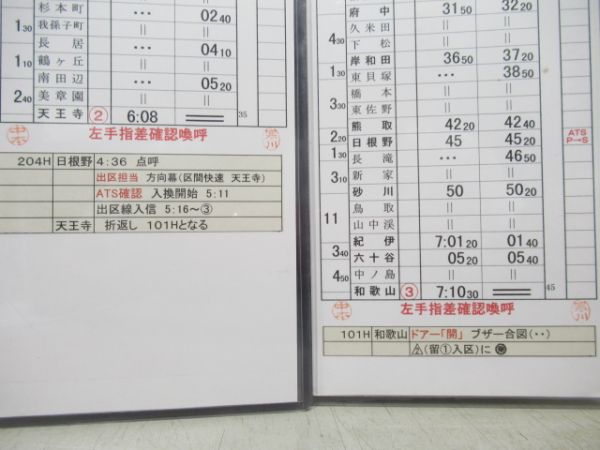 杉本町 ... 02 40
1 30
我孫子町 || ||
長居 ... 04 10
1 10
鶴ヶ丘 || ||
南田辺 ... 05 20
2 40
美章園 || ||
天王寺 ② 6:08 || 35
左手指差確認喚呼
204H 日根野 4:36 点呼
出区担当 方向幕(区間快速 天王寺)
ATS確認 入換開始 5:11
出区線入信 5:16~③
天王寺 折返し 101Hとなる
府中 31 50 32 20
久米田 || ||
4 30
下松 || ||
岸和田 36 50 37 20
1 30
東貝塚 ... 38 50
橋本 || ||
4
東佐野 || ||
熊取 42 20 42 40
2 20
日根野 45 45 20
長滝 ... 46 50
3 10
新家 || ||
砂川 50 50 20
鳥取 || ||
11
山中渓 || ||
紀伊 7:01 20 01 40
3 40
六十谷 05 20 05 40
4 50
中ノ島 || ||
和歌山 ③ 7:10 30 || 45
ATS
P→S
左手指差確認喚呼
101H 和歌山 ドアー「開」 ブザー合図(・・)
(留①入区)に